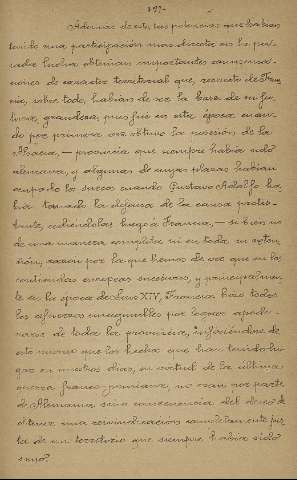 197.
Además de esto, las potencias que habian
tenido una participación mas directa en la pa-
sada lucha obtenian importantes compensa-
ciones de caracter territorial que, respecto de Fran-
cia, sobre todo, habian de ser la base de su fu-
tura grandeza, pues fué en esta época cuan-
do por primera vez obtuvo la posesión de la
Alsacia, — provincia que siempre habia sido
alemana, y algunas de cuyas plazas habian
ocupado los suecos cuando Gustavo Adolfo ha-
bia tomado la defensa de la causa protes-
tante, cediéndolas luego á Francia, — si bien no
de una manera completa ni en toda su exten-
sión, razon por la que hemos de ver que en las
contiendas europeas sucesivas, y principalmen-
te en la época de Luis XIV, Francia hizo todos
los esfuerzos imaginables por lograr apode-
rarse de toda la provincia, infiriéndose de
esto mismo que los hechos que han tenido lu-
gar en nuestros dias, en virtud de la última
guerra franco-prusiana, no eran por parte
de Alemania sino consecuencia del deseo de
obtener una reivindicación completamente jus-
ta de un territorio que siempre habia sido
suyo.